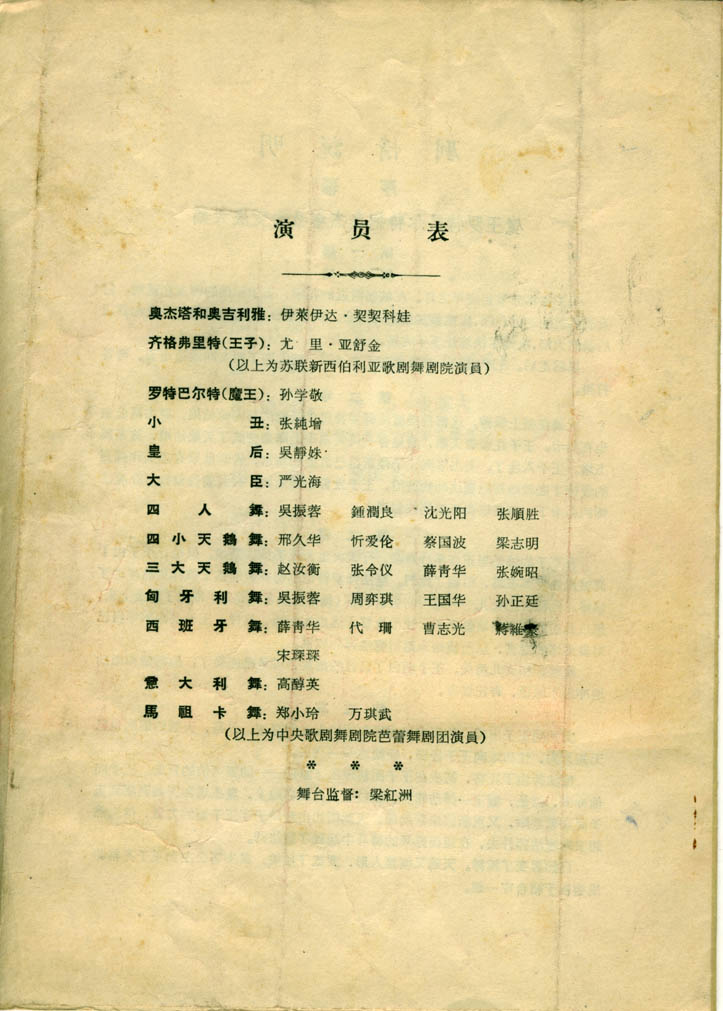 演员表
奥杰塔和奥吉利雅：伊萊伊达·契契科娃
齐格弗里特(王子)：尤 里·亚舒金
(以上为苏联新西伯利亚歌剧舞剧院演員)
罗特巴尔特(魔王)：孙学敬
小丑：张純增
皇后：吳靜姝
大臣：严光海
四人舞：吳振蓉 鍾潤良 沈光阳 张順胜
四小天鵝舞：邢久华 忻爱伦 蔡国波 梁志明
三大天鵝舞：赵汝衡 张令仪 薛青华 张婉昭
匈牙利舞：吳振蓉 周弈琪 王国华 孙正廷
西班牙舞：薛青华 代 珊 曹志光 蔣維豪
宋琛琛
意大利舞：高醇英
馬祖卡舞：郑小玲 万琪武
(以上为中央歌剧舞剧院芭蕾舞剧团演員)
＊ ＊ ＊
舞台监督：梁紅洲